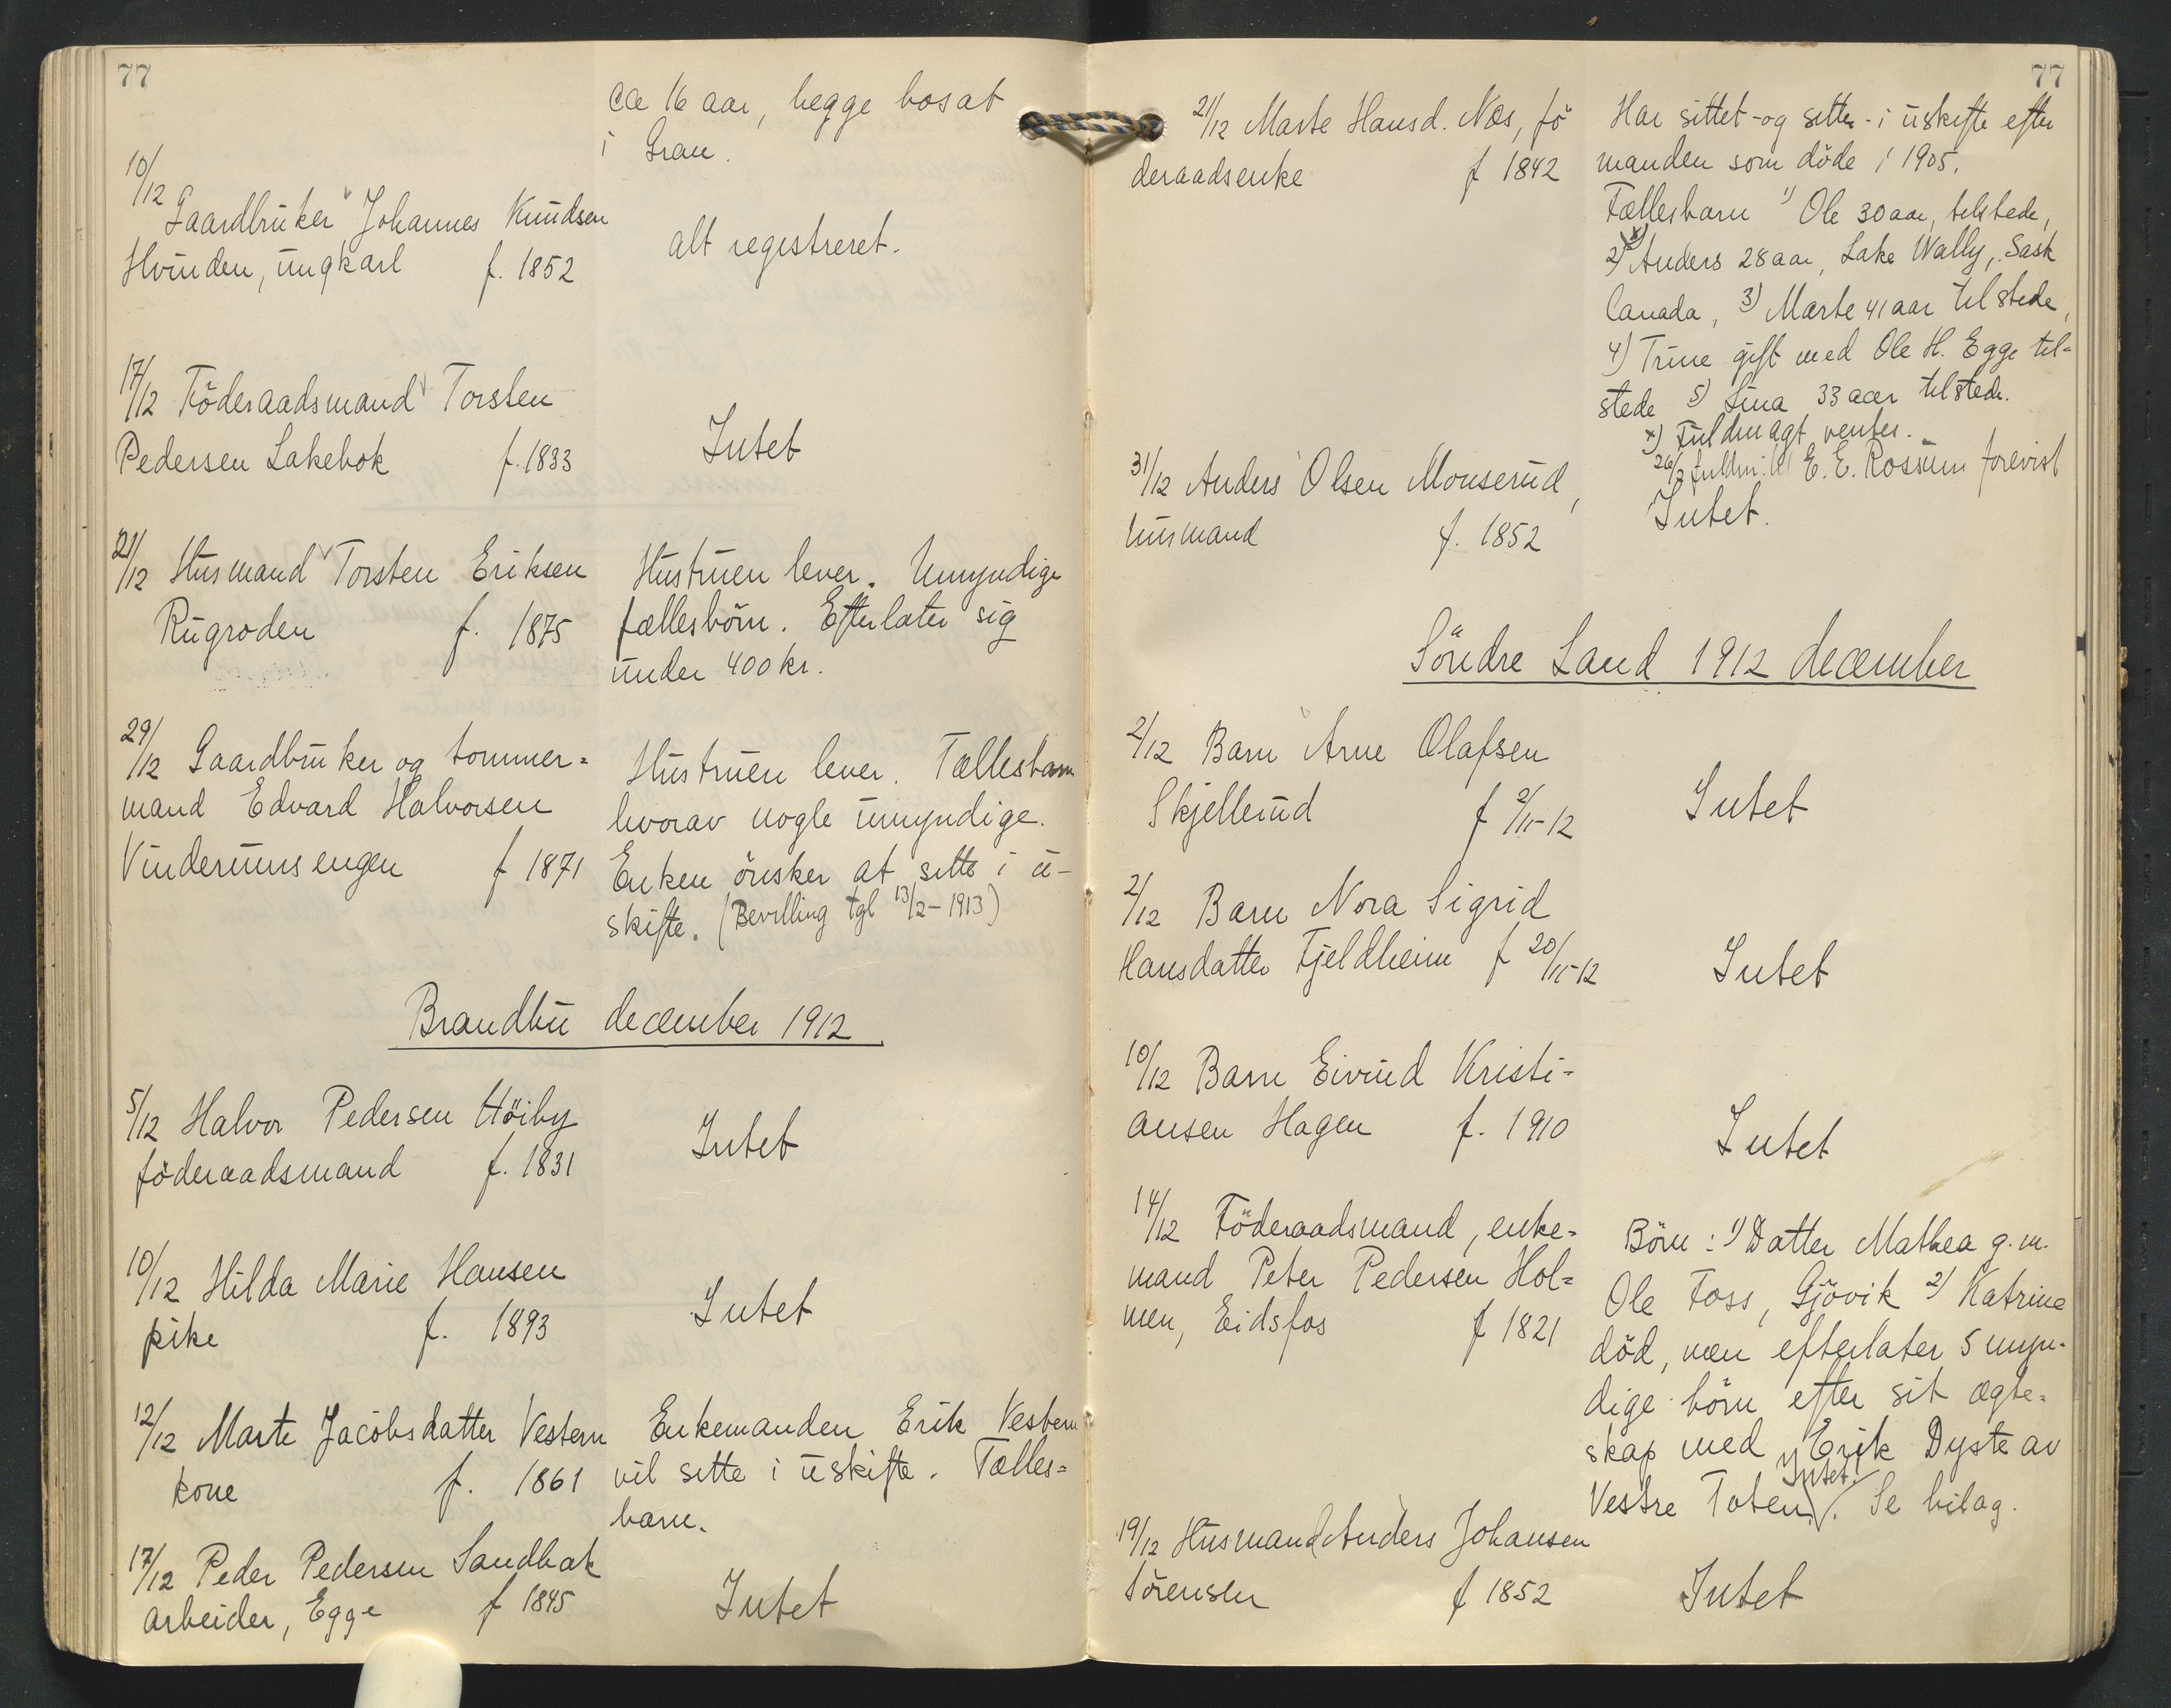 77
ca 16 aar, begge bosat
i Gran.
10/12 Gaardbruker Johannes Knudsen
Hvinden, ungkarl f. 1852
alt registreret.
17/12 Föderaadsmand Torsten
Pedersen Lakebok f. 1833
Intet
21/12 Husmand Torsten Eriksen
Rugroden f. 1875
Hustruen lever. Umyndige
fællesbörn. Efterlater sig
under 400 kr.
29/12 Gaardbruker og tommer=
mand Edvard Halvorsen
Vinderumsengen f 1871
Hustruen lever. Fællesbarn
hvorav nogle umyndige.
Enken önsker at sitte i u-
skifte. (Bevilling tgl 13/2-1913)
Brandbu december 1912
5/12 Halvor Pedersen Höiby
föderaadsmand f. 1831
Intet
10/12 Hilda Marie Hansen
pike f. 1893
Intet
12/12 Marte Jacobsdatter Vestern
kone f. 1861
Enkemanden Erik Vestern
vil sitte i uskifte. Fælles=
barn.
17/12 Peder Pedersen Sandbak
arbeider, Egge f 1845
Intet
77
21/12 Marte Hansd. Næs, fö
deraadsenke f 1842
Har sittet - og sitter - i uskifte efter
manden som döde i 1905.
Fællesbarn 1) Ole 30 aar, tilstede,
2) x) Anders 28 aar, Lake Wally, Sask
Canada, 3) Marte 41 aar tilstede,
4) Trine gift med Ole H. Egge til=
stede 5) Lina 33 aar tilstede.
x) Fuldmagt ventes.
26/2 fuldm. til E. E. Rossum forevist
31/12 Anders Olsen Monserud,
husmand f. 1852
Intet.
Söndre Land 1912 december
2/12 Barn Arne Olafsen
Skjellerud f 2/11-12
Intet
2/12 Barn Nora Sigrid
Hansdatter Fjeldheim f 20/11-12
Intet
10/12 Barn Eivind Kristi=
ansen Hagen f. 1910
Intet
14/12 Föderaadsmand, enke=
mand Peter Pedersen Hol=
men, Eidsfos f 1821
Börn: 1) Datter Mathea g. m.
Ole Foss, Gjövik 2) Katrine
död, men efterlater 5 myn=
dige börn efter sit ægte=
skap med Erik Dyste av
Vestre Toten. Intet. Se bilag.
19/12 Husmand Anders Johansen
Sörensen f 1852
Intet